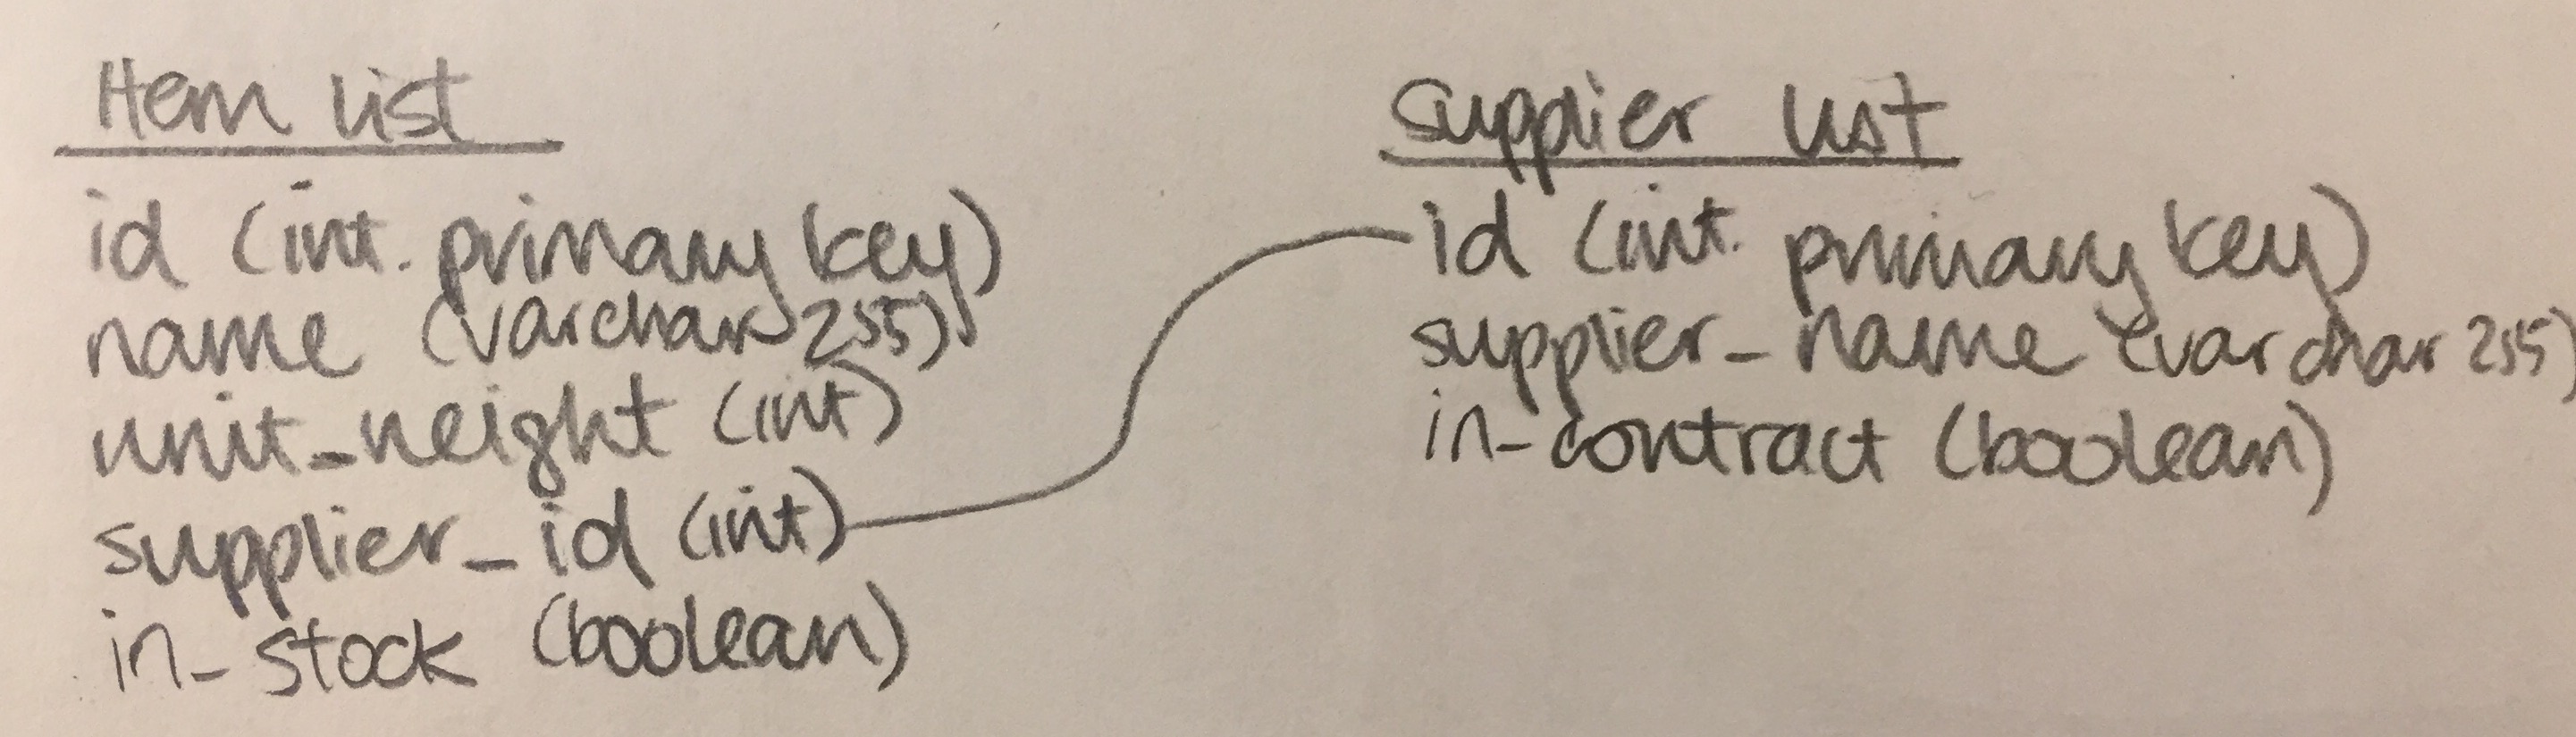 Item list
id (int. primary key)
name (varchar 255)
unit_weight (int)
supplier_id (int)
in_stock (boolean)
supplier list
id (int. primary key)
supplier_name (varchar 255)
in_contract (boolean)